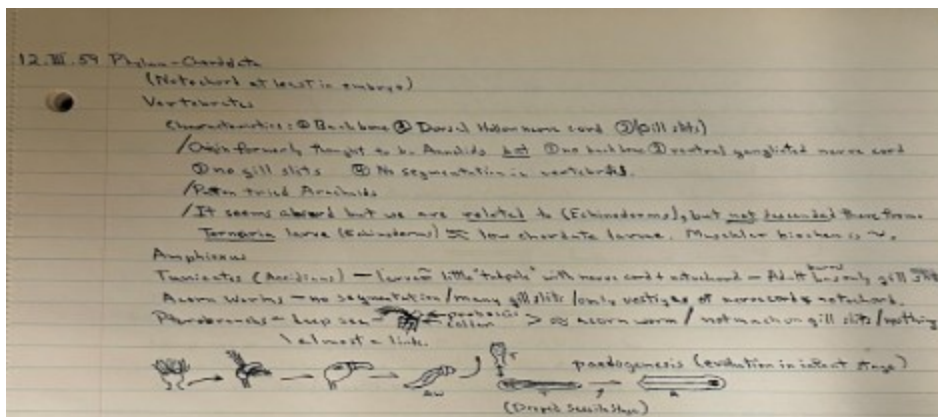 12.III.59 Phylum-Chordata
(Notochord at least in embryo)
Vertebrates
Characteristics: ① Backbone ② Dorsal Hollow nerve cord ③ (Gill slits)
/Origin formerly thought to be Annelids but ① no backbone ② ventral ganglioted nerve cord
③ no gill slits ④ No segmentation in vertebrates.
/Patten tried Arachnids
/It seems absurd but we are related to (Echinoderms), but not descended therefrom
Tornaria larva (Echinoderms) ≈ low chordate larvae. Muscular biochem is ~.
Amphioxus
Tunicates (Ascidians) — larvae little "tadpole" with nerve cord & notochord — Adult has only gill slits
Acorn Worms — no segmentation / many gill slits / only vestiges of nerve cord & notochord.
Pterobranchs — deep sea — proboscis collar > ≈ acorn worm / not much on gill slits / nothing
\almost a link.
T paedogenesis (evolution in infant stage)
AW T A
(Droped Sessile Stage)